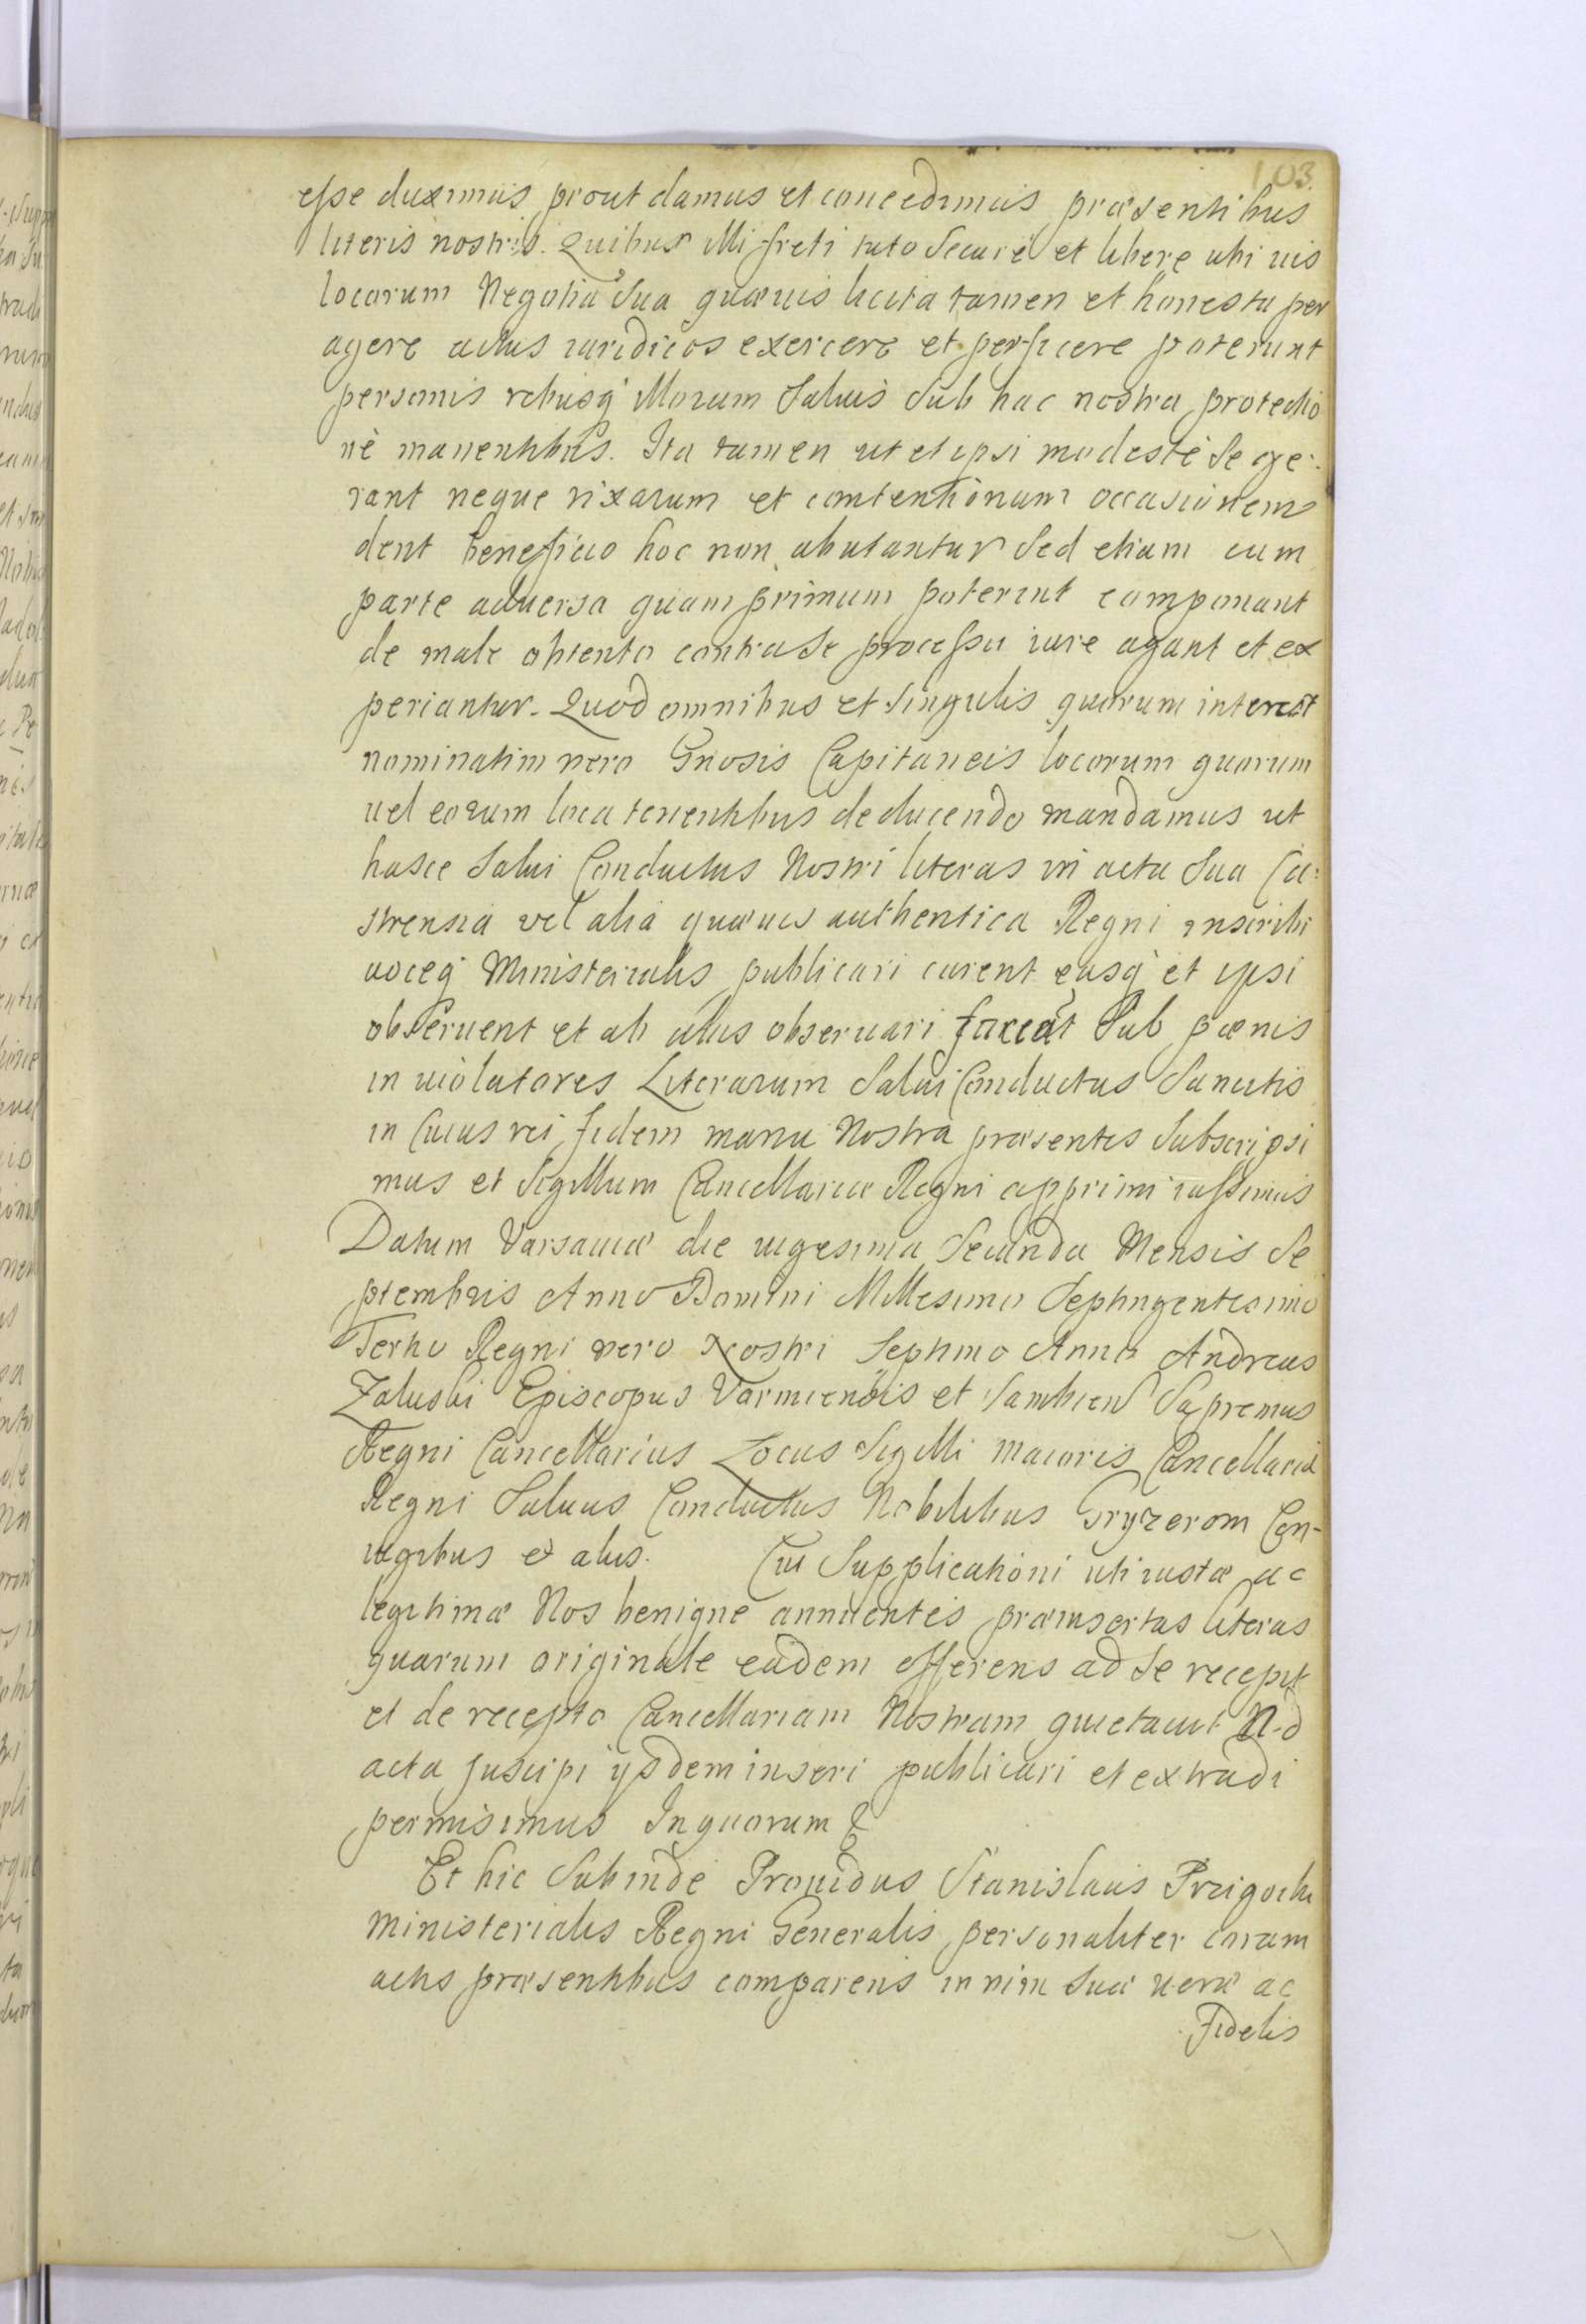 103
esse duximus prout damus et concedimus præsentibus
literis nostris. Quibus illi freti tuto Secure et libere ubi uis
locorum Negotia Sua quæuis licita tamen et honesta per
agere actus iuridicos exercere et perficere poterunt
personis rebusq' illorum Saluis Sub hac nostra protectio
ne manentibus. Ita tamen ut et ipsi modeste Se ge:
rant neque rixarum et contentionum occasionem
dent beneficio hoc non abutantur Sed etiam cum
parte aduersa quam primum poterint componant
de male obtento contra Se processu iure agant et ex
periantur. Quod omnibus et Singulis quorum interest
nominatim vero Gnosis Capitaneis locorum quorum
uel eorum loca tenentibus deducendo mandamus ut
hasce Salui Conductus Nostri literas in acta Sua Ca:
strensia vel alia quæuis authentica Regni inscribi
uoceq' Ministerialis publicari curent easq' et ipsi
obseruent et ab aliis obseruari faciāt Sub pœnis
in uiolatores Literarum Salui Conductus Sancitis
in Cuius rei fidem manu Nostra præsentes Subscripsi
mus et Sigillum Cancellariæ Regni apprimi iussimus
Datum Varsauiæ die uigesima Secunda Mensis Se
ptembris Anno Domini Millesimo Septingentesimo
Tertio Regni vero Nostri Septimo Anno Andreas
Zaluski Episcopus Varmiensis et Sambien Supremus
Regni Cancellarius Locus Sigilli maioris Cancellariæ
Regni Saluus Conductus Nobilibus Gryzerom Con-
iugibus et aliis. Cui Supplicationi uti iustæ ac
legitimæ Nos benigne annuentes præinsertas literas
quarum originale eadem offerens ad Se recepit
et de recepto Cancellariam Nostram quietauit Ad
acta Suscipi ysdem inseri publicari et extradi
permisimus In quorum &
Et hic Subinde Prouidus Stanislaus Przigocki
ministerialis Regni Generalis personaliter coram
actis præsentibus comparens in vim Suæ ueræ ac
Fidelis